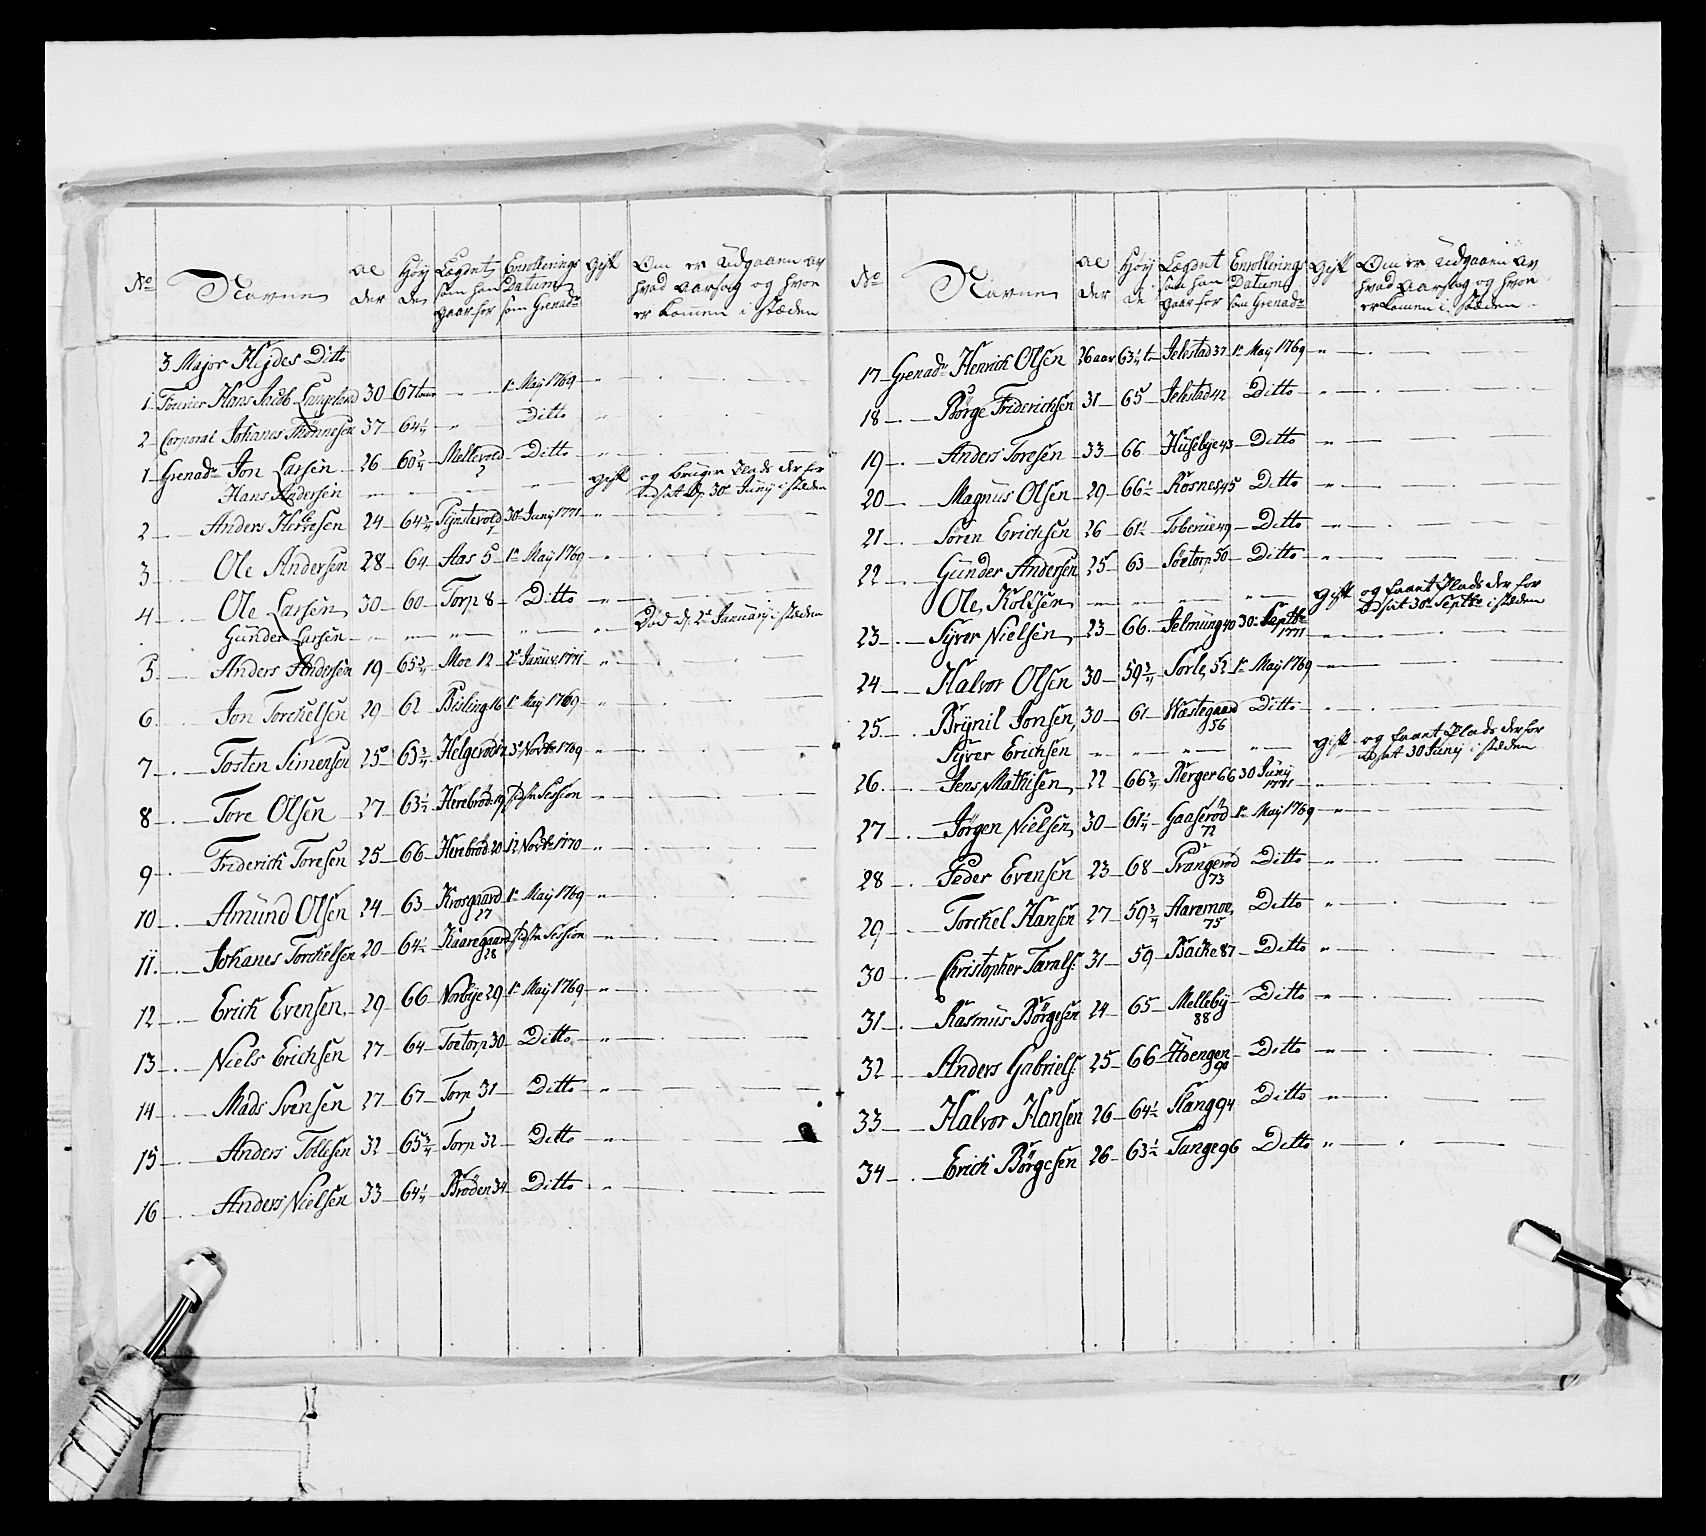 No Navne Al der Höy de Lægdet som han gaar for Enrollerings Datum som Grenadr Gift Om er Udgaaen av hvad aarsag og hvor er komen i stæden
3 Major Hejdes Ditto
1 Fourier Hans Jacob Langeland 30 67 tom 1e Maij 1769
2 Corporal Johanes Thönnesen 37 64¼ Ditto
1 Grenadr Jon Larsen 26 60¾ Mellevold 2 Ditto
Hans Andersen gift og bruger Plads derfor Udsat d. 30e Junij i stæden
2 Anders Halvesen 24 64¾ Tynstevold 30e Junij 1771
3 Ole Andersen 28 64 Aas 5 1e Maij 1769
4 Ole Larsen 30 60 Torp 8 Ditto
Gunder Larsen Död d. 2e Januarij i stæden
5 Anders Andersen 19 65¾ Moe 12 2e Januv. 1771
6 Jon Torckelsen 29 62 Bisling 16 1e Maij 1769
7 Tosten Simensen 25 63¾ Helgeröd 3e Novbr 1769
8 Tore Olsen 27 63½ Herebröd 19 sidste Session
9 Friderich Toresen 25 66 Herebröd 20 12 Novbr 1770
10 Amund Olsen 24 63 Krosgaard 27 1e Maij 1769
11 Johanes Torckelsen 20 64½ Kaaregaard 28 sidste Session
12 Erich Evensen 29 66 Norbye 29 1e Maij 1769
13 Niels Erichsen 27 64 Toetorp 30 Ditto
14 Mads Svensen 27 67 Torp 31 Ditto
15 Anders Tollesen 32 65¾ Torp 32 Ditto
16 Anders Nielsen 33 64¼ Bröden 34 Ditto
No Navne Al der Höy de Lægdet som han gaar for Enrollerings Datum som Grenadr Gift Om er Udgaaen av hvad aarsag og hvor er komen i stæden
17 Grenadr Henrich Olsen 26 aar 63¼ t Jelestad 37 1e Maij 1769
18 Börge Friderichsen 31 65 Jelestad 42 Ditto
19 Anders Toresen 33 66 Husebye 43 Ditto
20 Magnus Olsen 29 66½ Rosnes 45 Ditto
21 Sören Erichsen 26 61½ Toberue 49 Ditto
22 Gunder Andersen 25 63 Söetorp 50 Ditto
Ole Kolssen gift og faaet Plads derfor Udsat 30e Septbr i stæden
23 Syver Nielsen 23 66 Jelmung 40 30e Septbr 1771
24 Halvor Olsen 30 59¾ Sorle 52 1e Maij 1769
25 Brynil Jonsen 30 61 Wæstegaard 56 Ditto
Syver Erichsen gift og faaet Plads derfor Udsat 30 Junij i stæden
26 Jens Mathisen 22 66¾ Berger 66 30 Junij 1771
27 Jörgen Nielsen 30 61¼ Gaaseröd 72 1e Maij 1769
28 Peder Evensen 23 68 Prangeröd 73 Ditto
29 Torckel Hansen 27 59¾ Aaremoe 75 Ditto
30 Christopher Tarals: 31 59 Backe 87 Ditto
31 Rasmus Börgesen 24 65 Melleby 88 Ditto
32 Anders Gabriels: 25 66 Höengen 90 Ditto
33 Halvor Hansen 26 64½ Slang 94 Ditto
34 Erich Börgesen 26 63½ Tange 96 Ditto